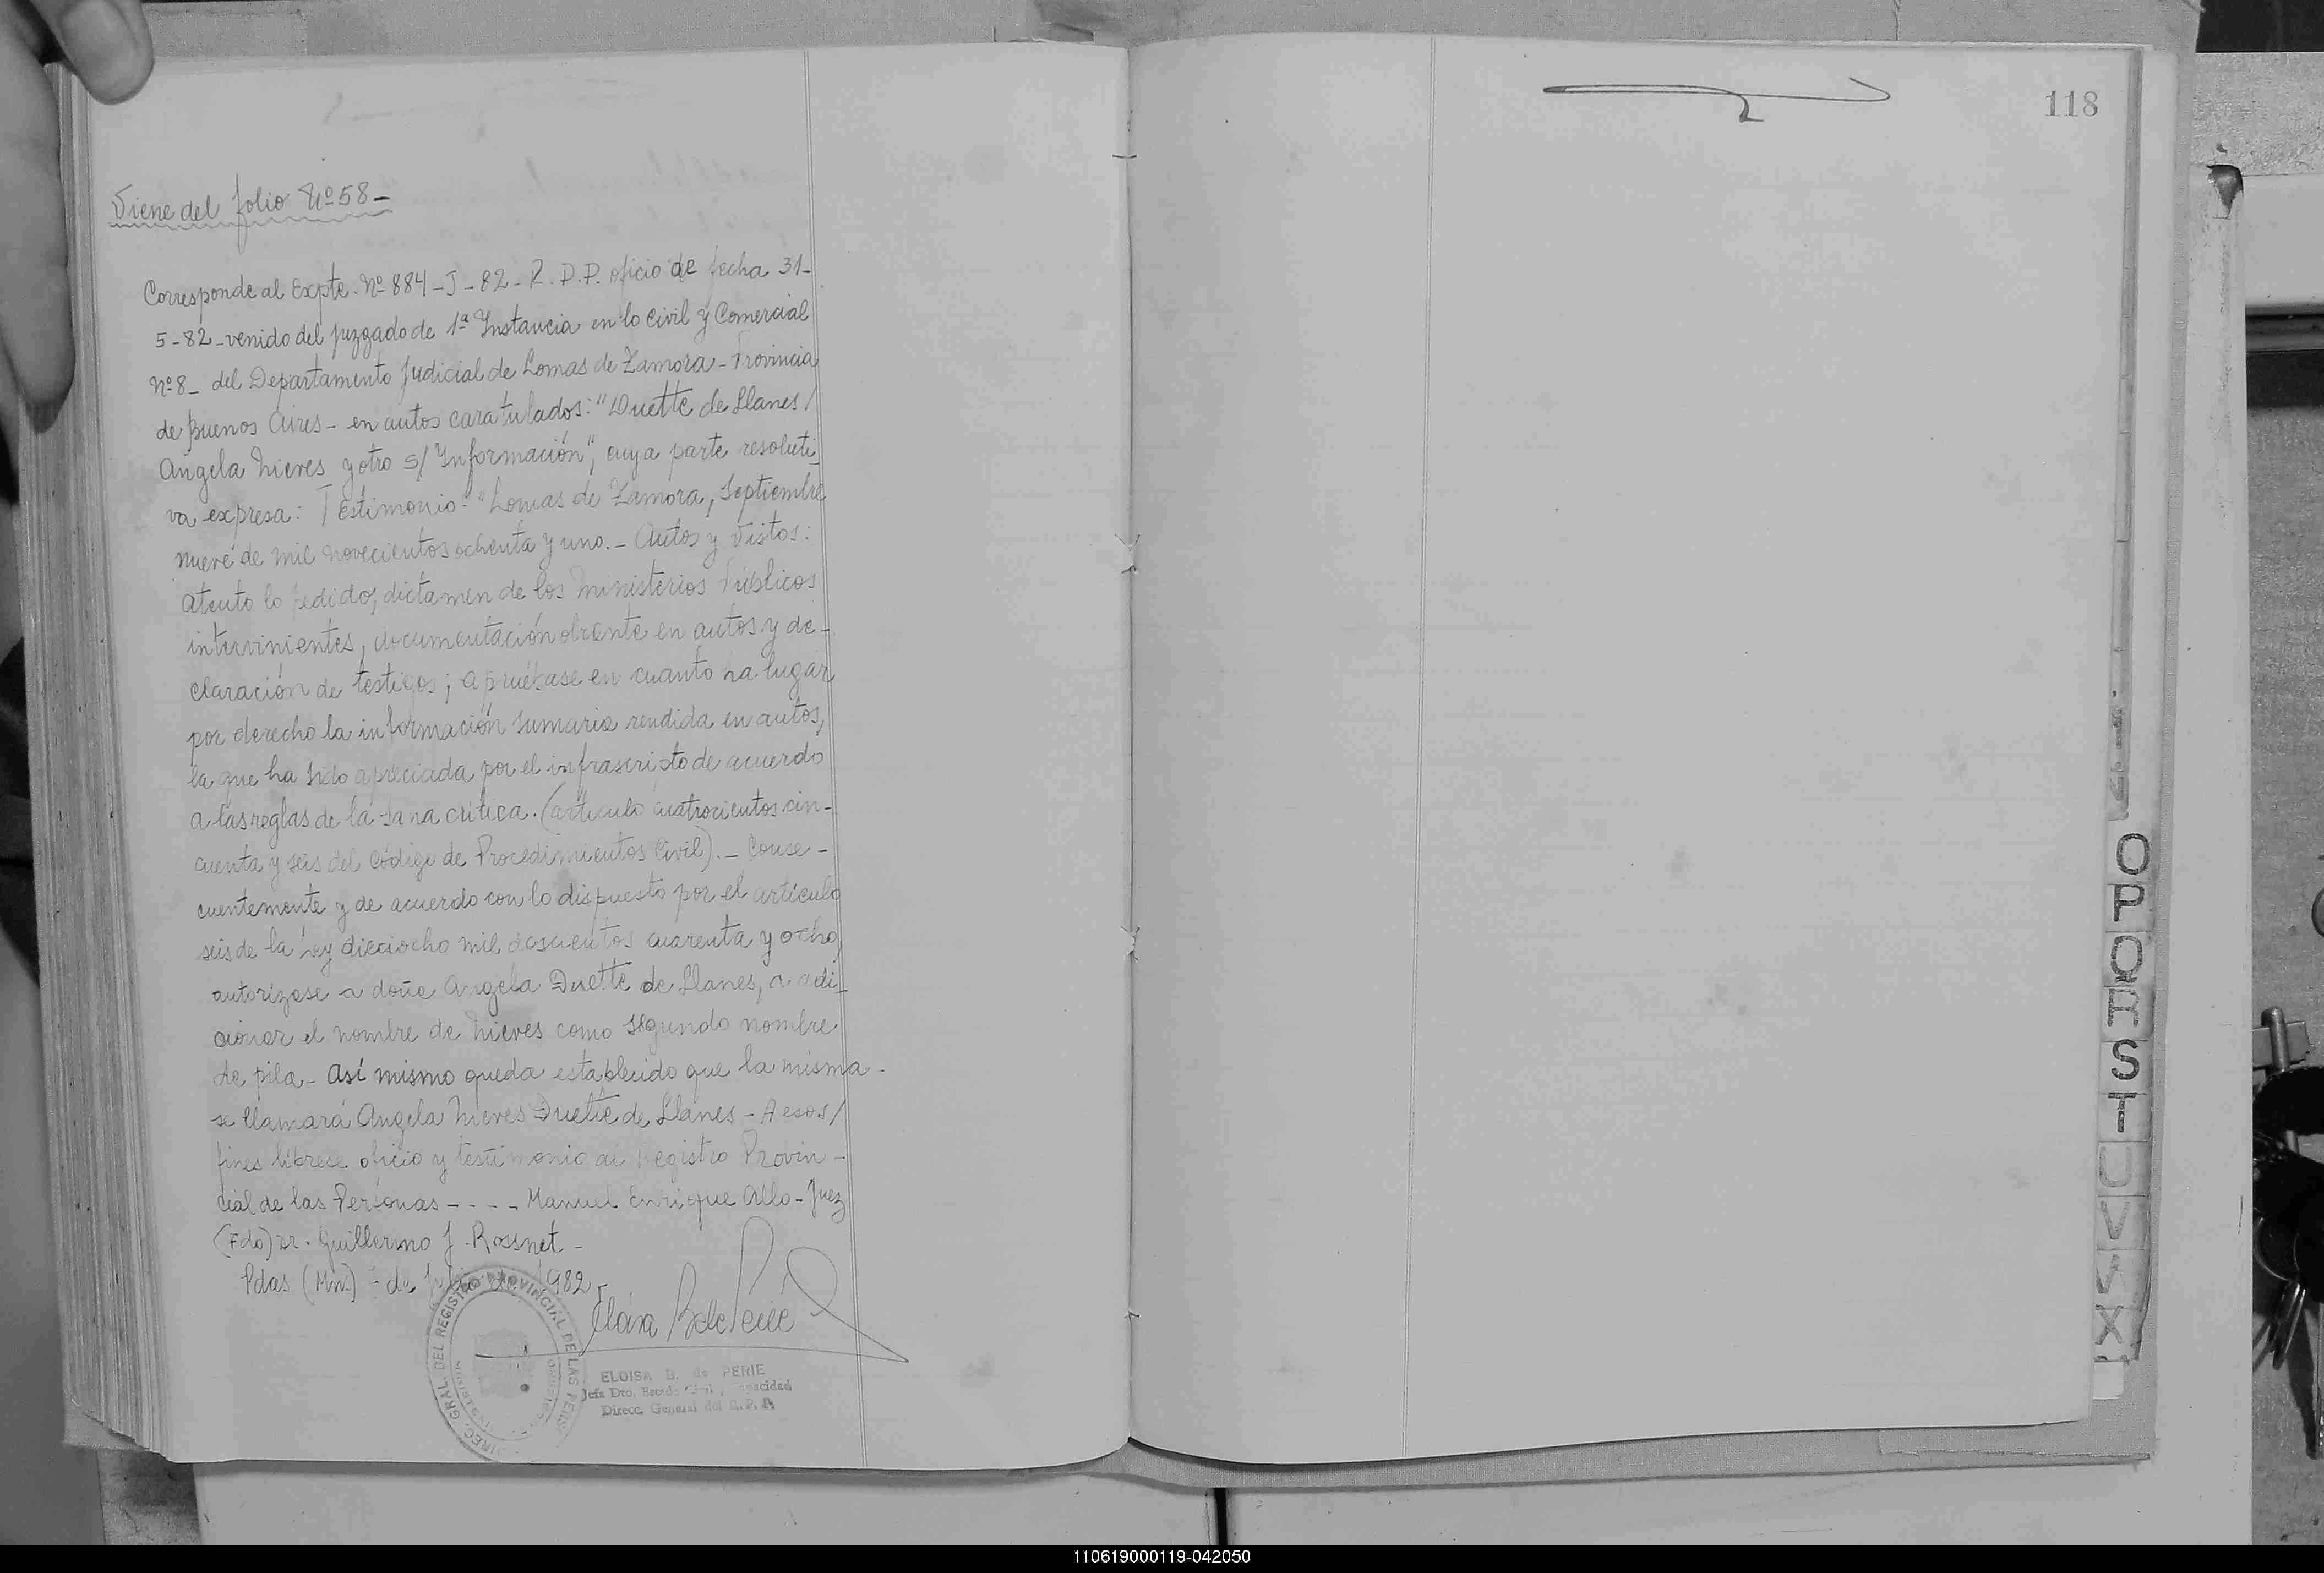 Viene del folio Nº 58-
Corresponde al Expte. Nº 884-J-82-R.P.P. oficio de fecha 31-
5-82-venido del juzgado de 1ª Instancia en lo Civil y Comercial
Nº 8- del Departamento Judicial de Lomas de Zamora-Provincia
de Buenos Aires- en autos caratulados: "Duette de Llanes/
Angela Nieves y otro s/ Información", cuya parte resoluti_
va expresa: Testimonio: "Lomas de Zamora, Septiembre
nueve de mil novecientos ochenta y uno.- Autos y Vistos:
Atento lo pedido, dictamen de los Ministerios Públicos
intervinientes, documentación obrante en autos y de-
claración de testigos; apruébase en cuanto ha lugar
por derecho la información sumaria rendida en autos,
la que ha sido apreciada por el infrascripto de acuerdo
a las reglas de la sana crítica. (artículo cuatrocientos cin-
cuenta y seis del Código de Procedimientos Civil).- Conse-
cuentemente y de acuerdo con lo dispuesto por el artículo
seis de la Ley dieciocho mil doscientos cuarenta y ocho,
autorízase a doña Angela Duette de Llanes, a adi_
cionar el nombre de Nieves como segundo nombre
de pila- Así mismo queda establecido que la misma-
se llamará Angela Nieves Duette de Llanes-A esos/
fines líbrese oficio y testimonio al Registro Provin-
cial de las Personas---- Manuel Enrique Allo-Juez
(Fdo) Dr. Guillermo J. Rossnet-
Pdas (Mn) de 1982
DIREC. GRAL. DEL REGISTRO PROVINCIAL DE LAS PERS
ELOISA B. de PERIE
Jefa Dto. Estado Civil y Capacidad
Direcc. General del R. P. P.
118
O
P
Q
R
S
T
U
V
X
110619000119-042050